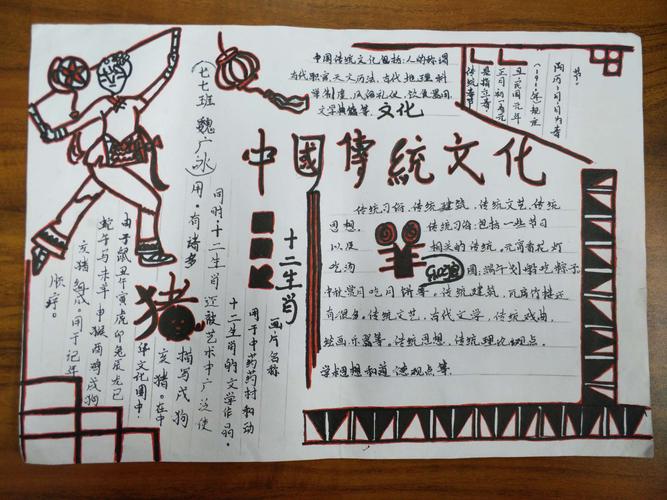 中国传统文化包括:人的称谓
古代职官天文历法,古代地理科
举制度,风俗礼仪,饮食器用
文学典籍等.
文化
节。
丑,民国元年
正月初一为元
传统春节
七七班 魏广冰
中國傳統文化
传统习俗,传统建筑,传统文艺,传统
思想. 传统习俗:包括一些节日
以及 相关的传统。元宵看花灯
吃汤圆,端午划 吃粽子
中秋赏月吃月饼等。传统建筑,
有很多。传统文艺,古代文学,传统戏曲,
绘画乐器等。传统思想,传统理论观点。
学术思想和道德观点等.
羊
十二生肖
画片名称
用于中药药材和动
十二生肖的文学作品.
同时,十二生肖还被艺术中广泛使
用。有诸多
描写戌狗
亥猪。在中
华文化圈中.
猪
由于鼠丑牛寅虎卯兔辰龙巳
蛇午马未羊申猴酉鸡戌狗
亥猪组成。用于记年
顺序。